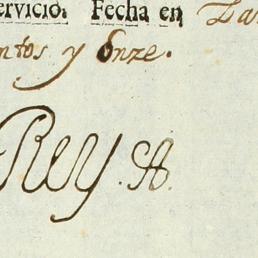 ervicio. Fecha en Za
ntos y Onze.
Rey